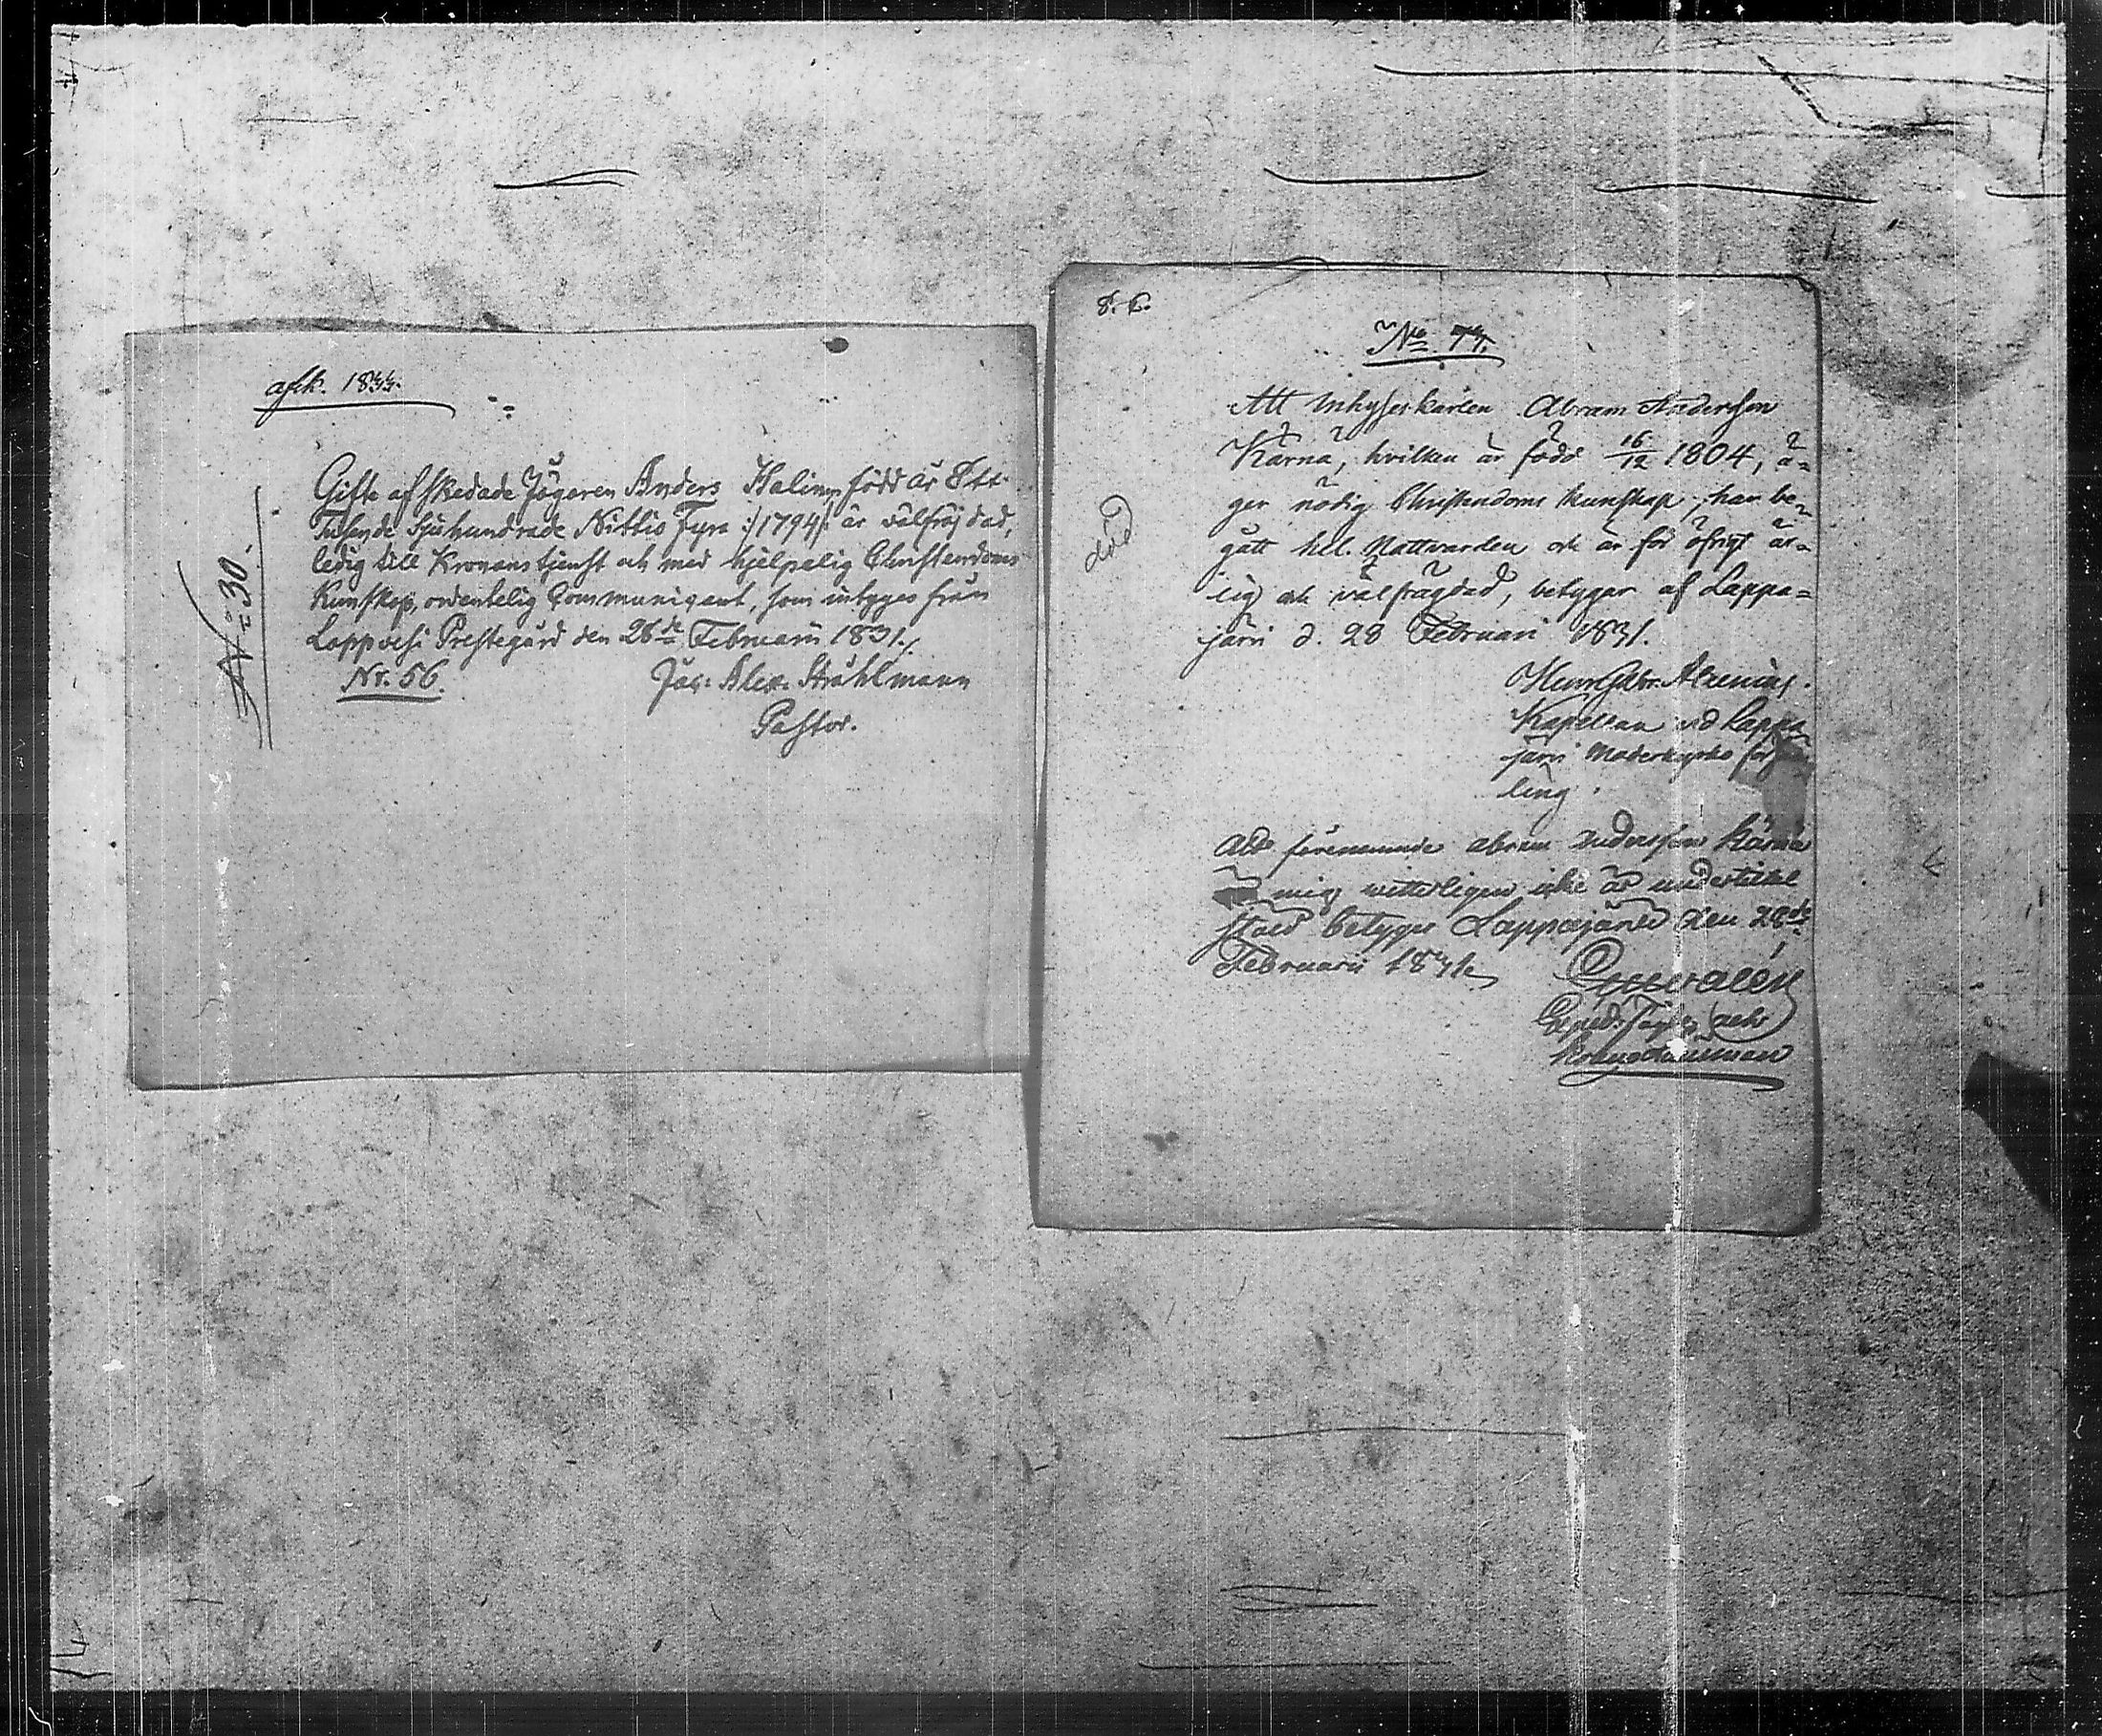 afsk. 1833.
Gifte afskedade Jägeren Anders Halin, född år Ett
Tusende Sjuhundrade Nittio Fyra :/1794/: är välfräjdad,
ledig till Kronans tjenst och med hjelpelig Christendoms
Kunskap, ordentelig Communicant, som intyges från
Lappvesi Prestegård den 26de Februarii 1831.
Nr. 56. Jac: Alex: Stråhlmann
Pastor.
No 30.
No 77.
Att Inhyseskarlen Abram Andersson
Kärnä, hvilken är född 16/12 1804, ä=
ger nödig Christendoms kunskap, har be=
gått hel. Nattvarden och är för öfrigt är=
lig och välfrägdad, betygar af Lappa=
järvi d. 28 Februari 1831.
Henr. Gabr. Alcenius.
Kapellan vid Lappa
järvi Moderkyrko
ling.
död
Att förenemnde Abram Andersson Kärnä
mig witterligen icke är under tilltal
stäld betygar Lappajärvi den 28de
Februarii 1831.
Kronolänsman